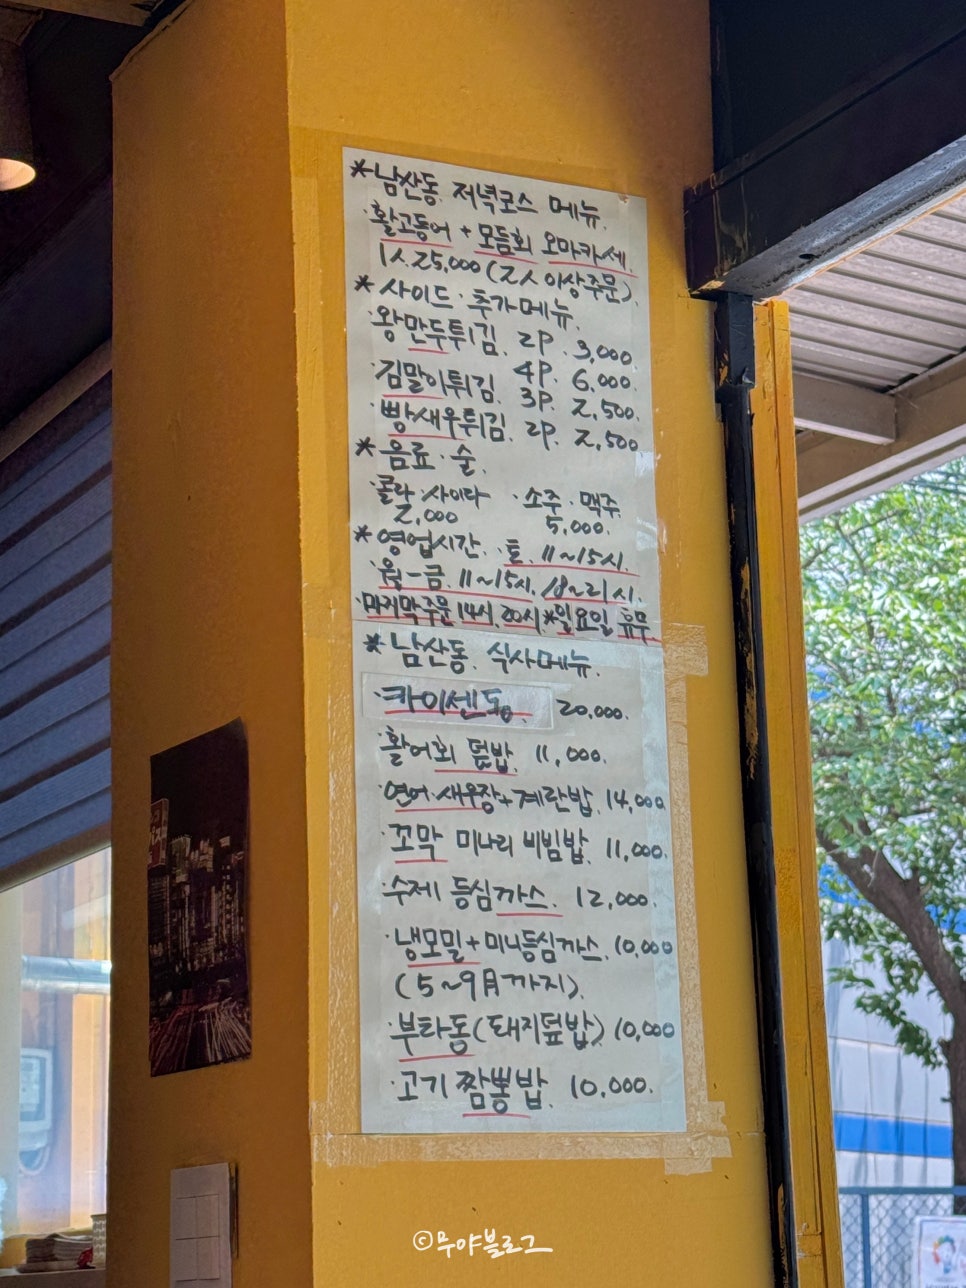 *남산동 저녁코스 메뉴.
·활고등어 + 모듬회 오마카세.
1人 25,000 (2人 이상주문).
* 사이드·추가메뉴.
·왕만두튀김. 2P. 3,000.
4P. 6,000.
·김말이튀김. 3P. 2,500.
·빵새우튀김. 2P. 2,500
* 음료·술.
·콜라·사이다 ·소주·맥주
2,000 5,000.
* 영업시간. ·토. 11~15시.
·월-금. 11~15시. 18~21시.
·마지막주문 14시. 20시.*일요일 휴무.
* 남산동. 식사메뉴.
·카이센동. 20,000.
·활어회 덮밥. 11,000.
·연어·새우장+계란밥. 14,000.
·꼬막 미나리 비빔밥. 11,000.
·수제 등심까스. 12,000.
·냉모밀+미니등심까스. 10,000
(5~9月까지).
·부타동(돼지덮밥) 10,000
·고기 짬뽕밥. 10,000.
©무야블로그